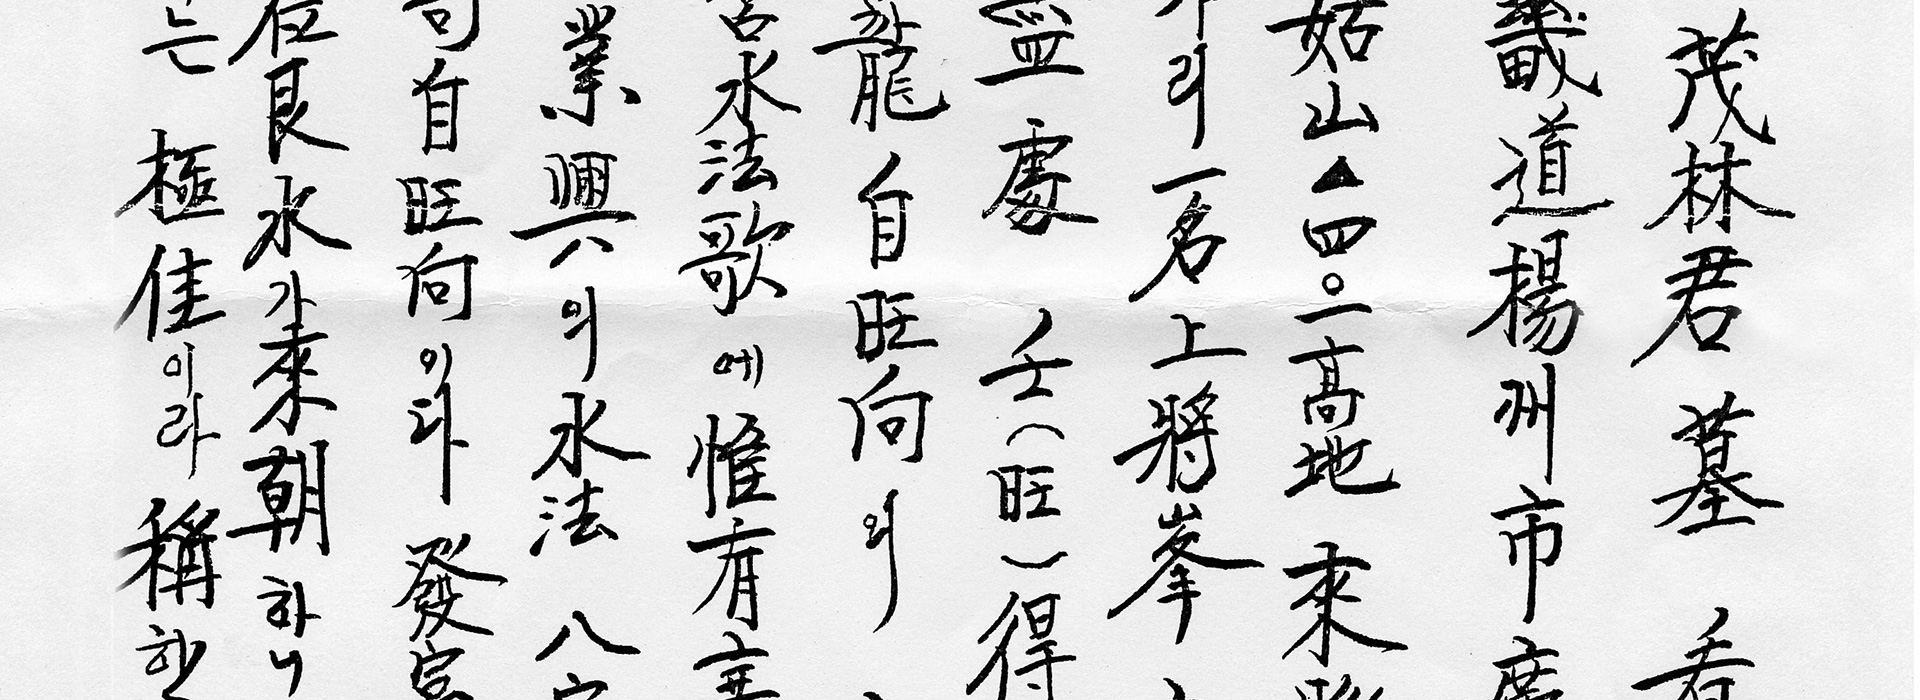 茂林君 墓 看
畿道楊州市廣
姑山▲四。一高地 來
리 一名 上將峯
處 壬(旺)得
龍 自旺向의
水法歌에 惟有
業興八의 水法 八
自旺向이라 發富
艮水가 來朝하니
는 極佳이라 稱하